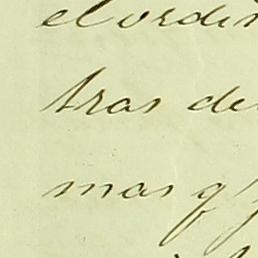 el orden
tras de
mas q'